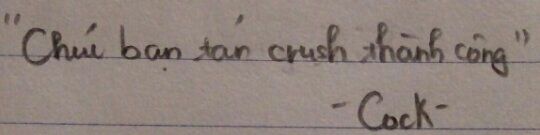 "Chúc bạn tán crush thành công"
-Cock-